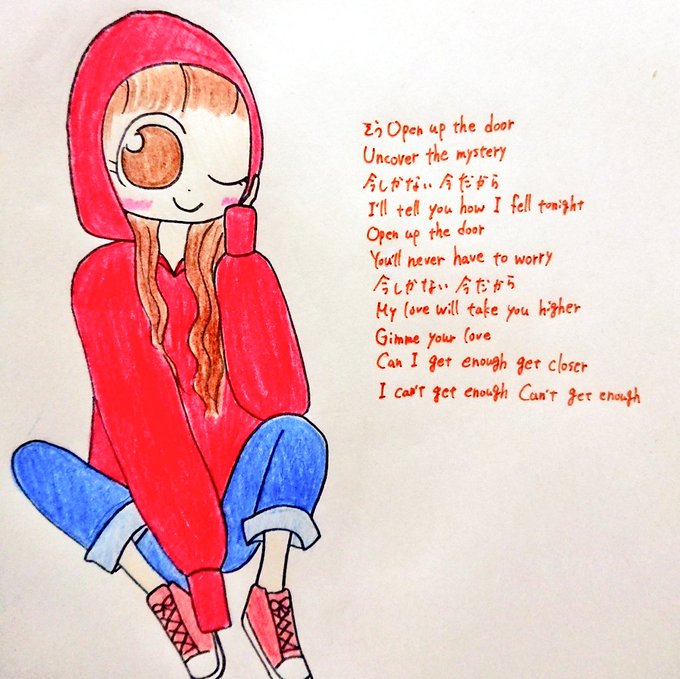 そう Open up the door
Uncover the mystery
今しかない 今だから
I'll tell you how I fell tonight
Open up the door
You'll never have to worry
今しかない 今だから
My love will take you higher
Gimme your love
Can I get enough get closer
I can't get enough Can't get enough